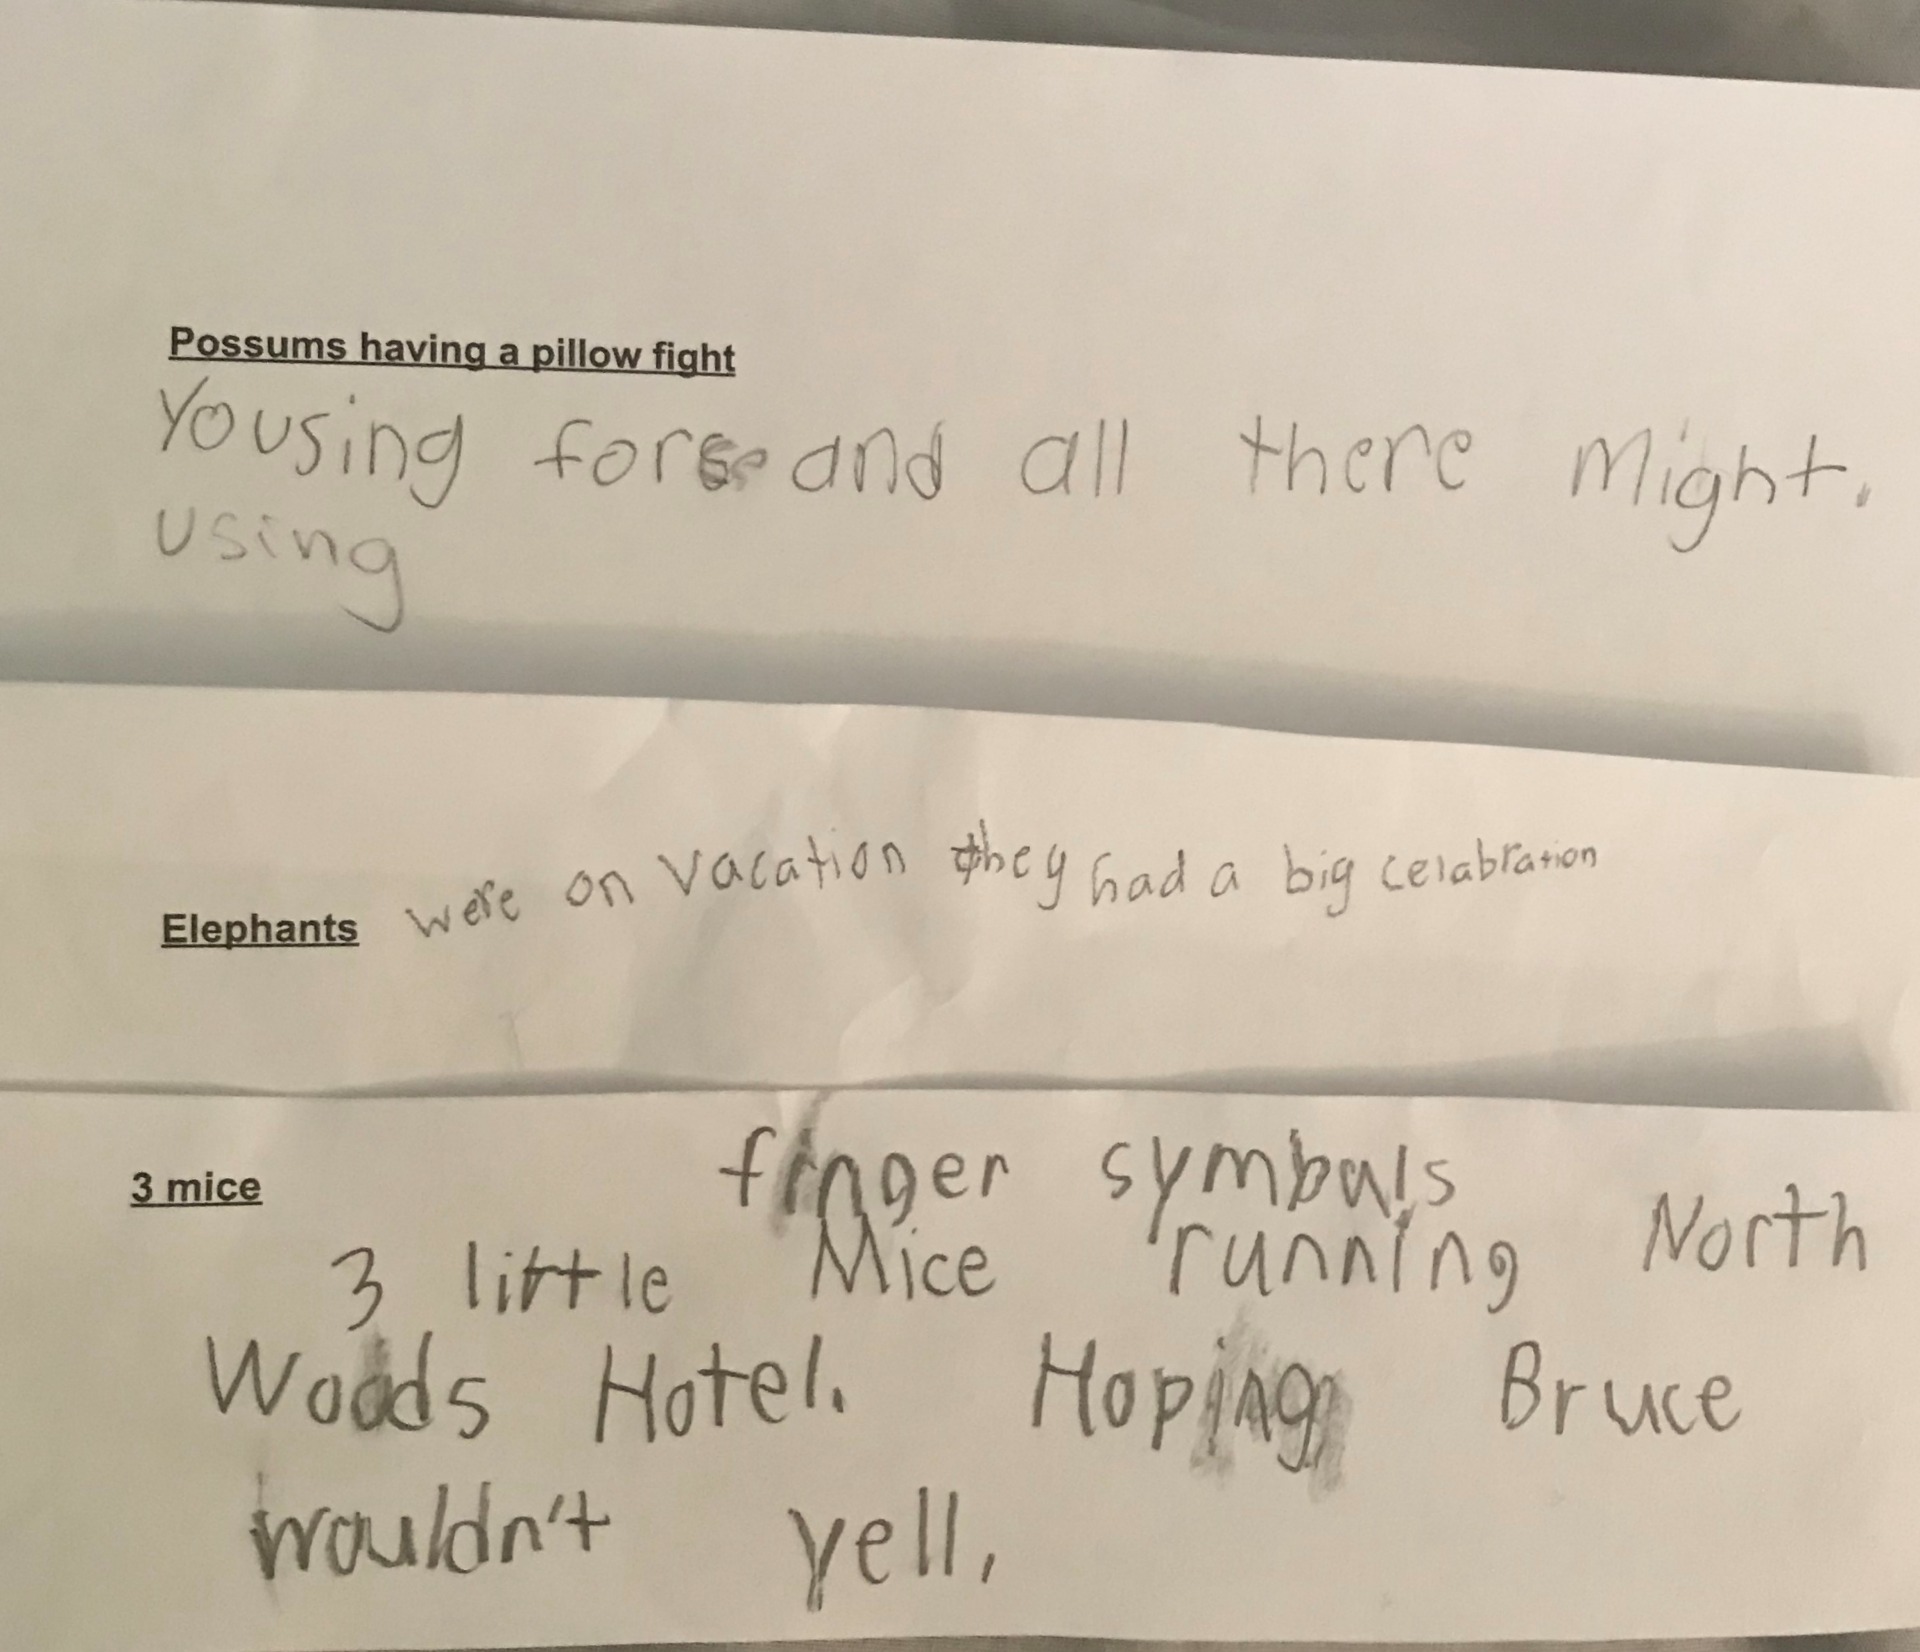 Possums having a pillow fight
Yousing forse and all there Might.
using
Elephants were on vacation they had a big celabration
finger symbals
3 mice
3 little Mice running North
Woods Hotel. Hoping Bruce
wouldn't yell,